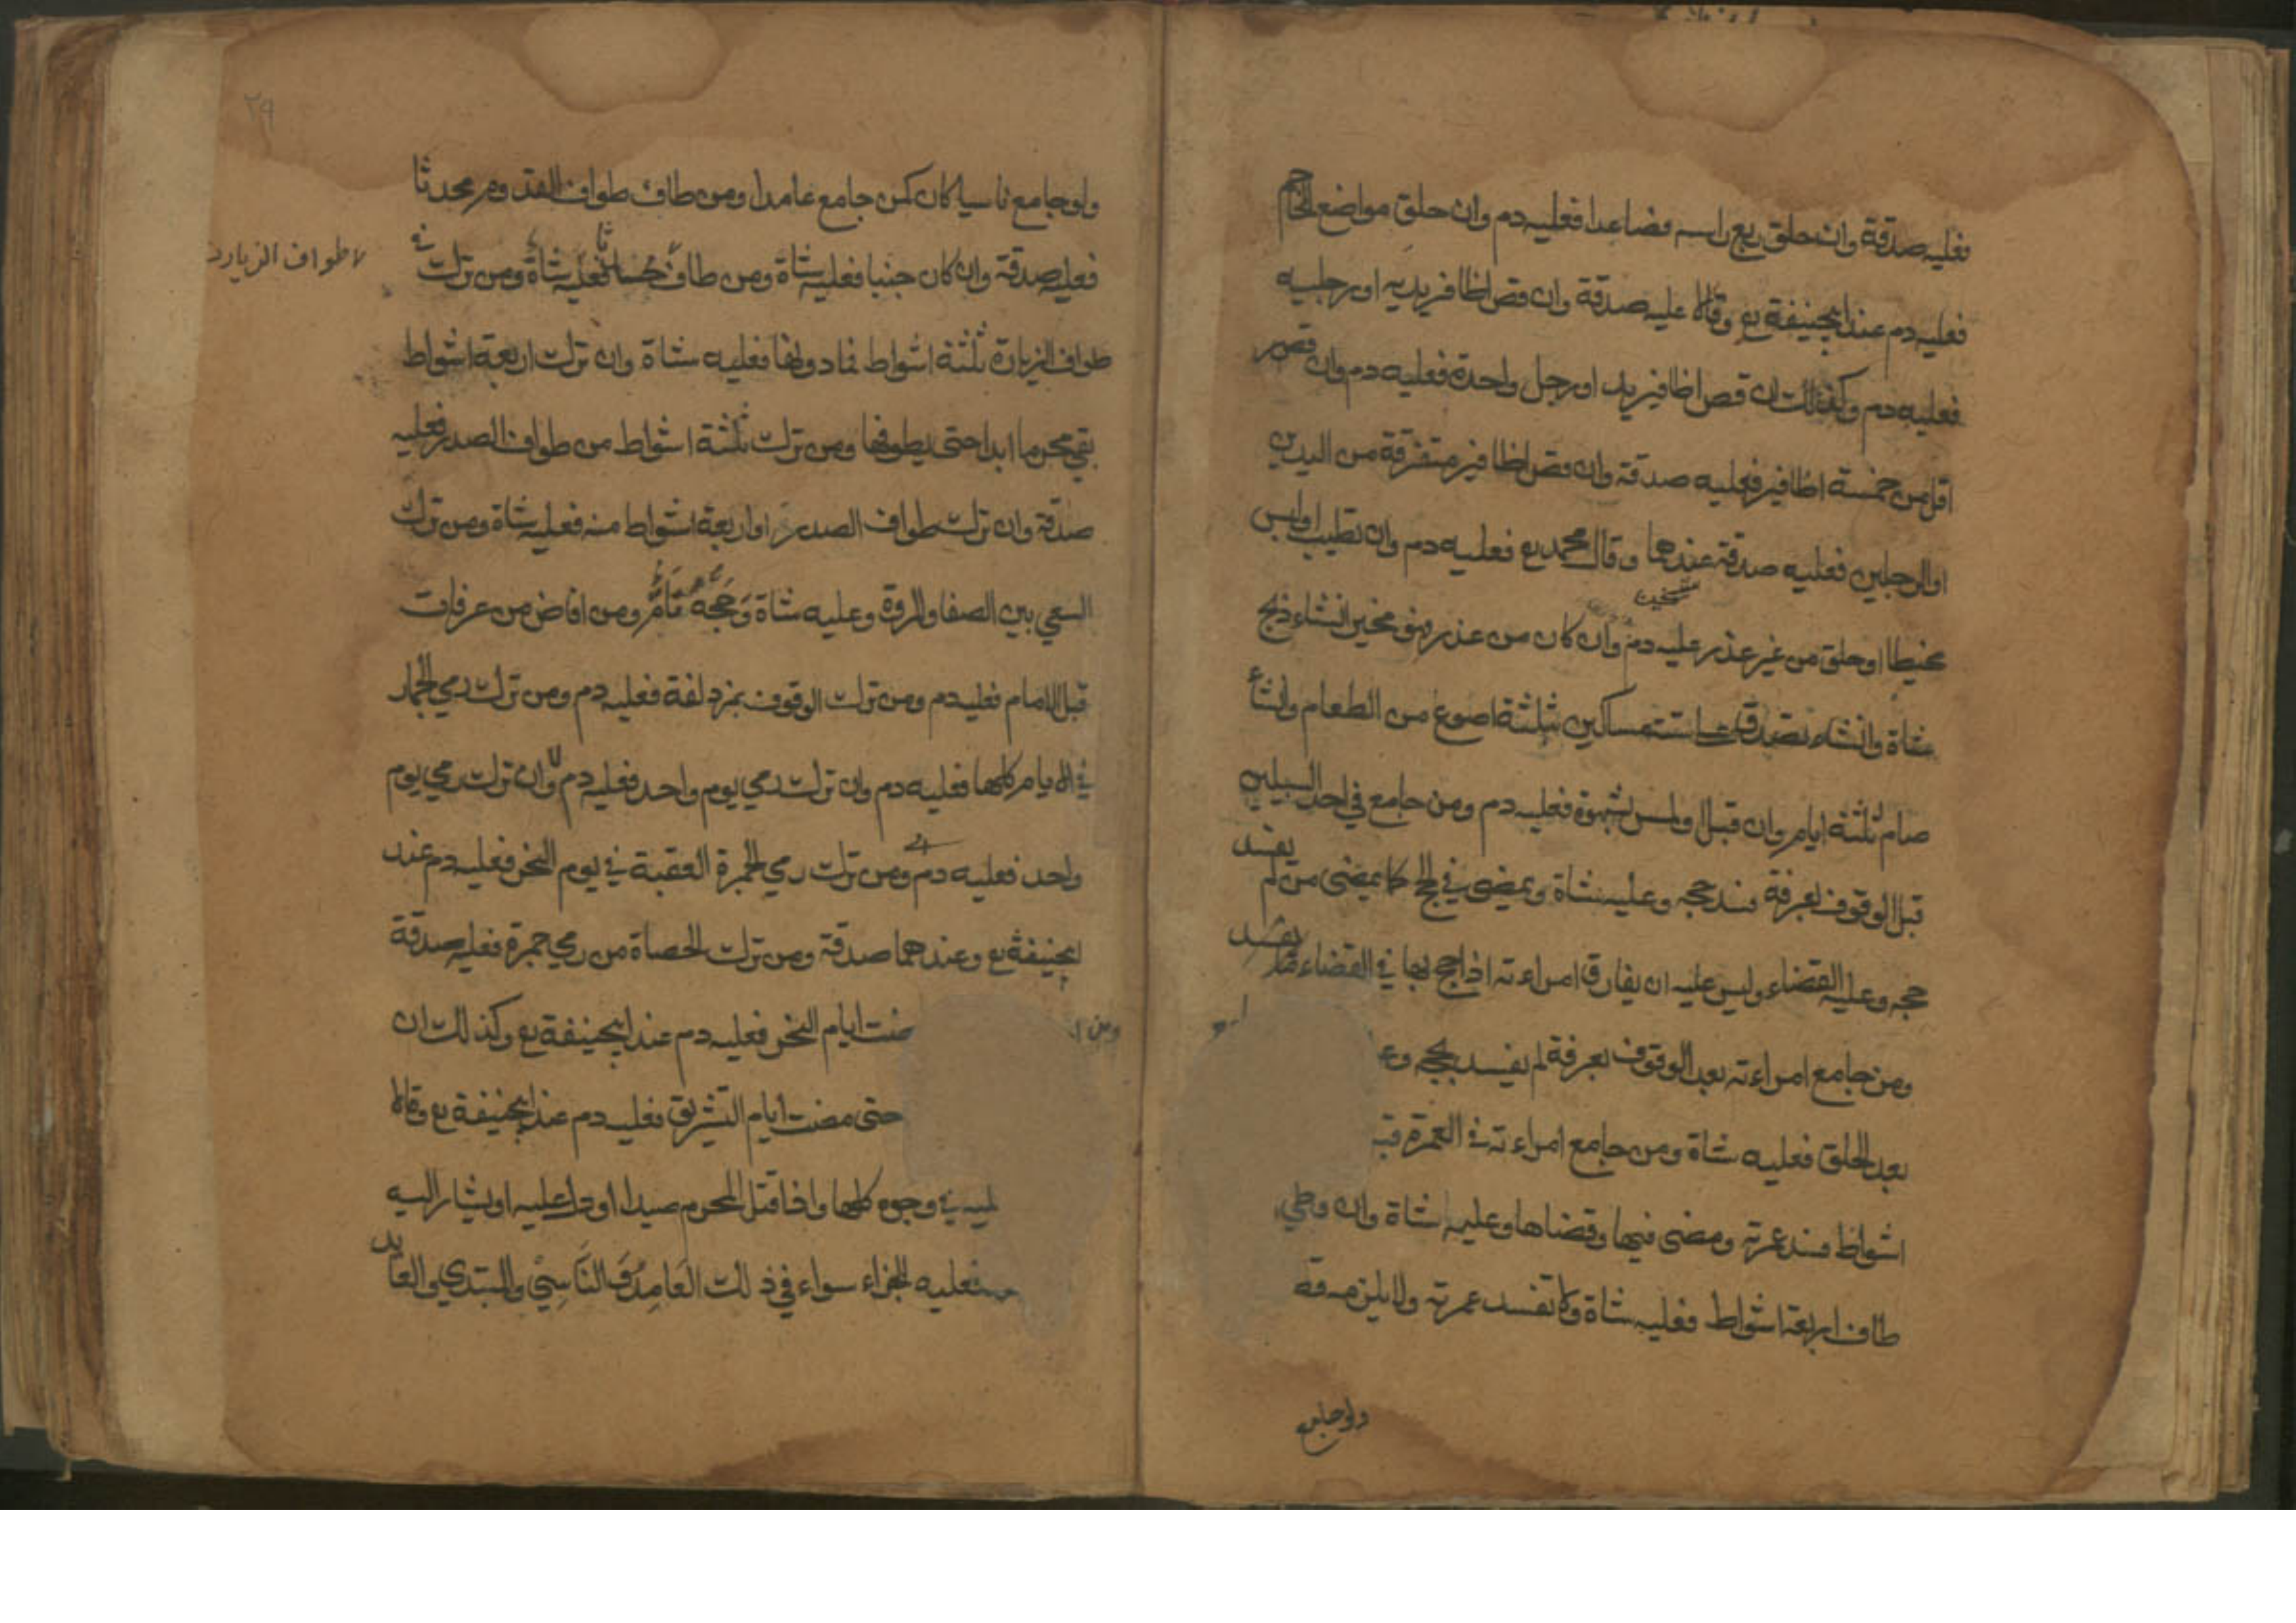 فعليه صدقة وان حلق ربع راسه فصاعدا فعليه دم وان حلق مواضع المحاجم
فعليه دم عند ابيحنيفة رع وقالا عليه صدقة وان قص اظافر يديه او رجليه
فعليه دم وكذلك ان قص اظافير يد او رجل واحدة فعليه دم وان قص
اقل من خمسة اظافير فعليه صدقة وان قص اظافير متفرقة من اليدين
او الرجلين فعليه صدقة عندهما وقال محمد رع فعليه دم وان تطيب او لبس
مخيطا او حلق من غير عذر عليه دم وان كان من عذر فهو مخير انشاء ذبح
شاة وانشاء تصدق على ستة مساكين بثلثة اصوع من الطعام وانشاء
صام ثلثة ايام وان قبل او لمس بشهوة فعليه دم ومن جامع في احد السبيلين
قبل الوقوف بعرفة فسد حجه وعليه شاة ويمضي في الحج كما يمضى من لم يفسد
حجه وعليه القضاء وليس عليه ان يفارق امراءته اذا حج بها في القضاء
ومن جامع امراءته بعد الوقوف بعرفة لم يفسد حجه
بعد الحلق فعليه شاة ومن جامع امراءته في العمرة
اشواط فسد عمرته ومضى فيها وقضاها وعليه شاة وان وطي
طاف اربعة اشواط فعليه شاة ولا تفسد عمرته ولا يلزمه
ولو جامع
٢٩
ولو جامع ناسيا كان كمن جامع عامدا ومن طاف طواف القدوم محدثا
فعليه صدقة وان كان جنبا فعليه شاة ومن طاف فعليه شاة ومن ترك
لا طواف الزيارة
طواف الزيارة ثلثة اشواط فما دونها فعليه شاة وان ترك اربعة اشواط
بقي محرما ابدا حتى يطوفها ومن ترك ثلثة اشواط من طواف الصدر فعليه
صدقة وان ترك طواف الصدر او اربعة اشواط منه فعليه شاة ومن ترك
السعي بين الصفا والمروة وعليه شاة وَحَجُّهُ تَامٌّ ومن افاض من عرفات
قبل الامام فعليه دم ومن ترك الوقوف بمزدلفة فعليه دم ومن ترك رمي الجمار
في الايام كلها فعليه دم وان ترك رمي يوم واحد فعليه دم وان ترك رمي يوم
واحد فعليه دم ومن ترك رمي الجمرة العقبة في يوم النحر فعليه دم عند
ابيحنيفة رع وعندهما صدقة ومن ترك الحصاة من رمي جمرة فعليه صدقة
ومن ا ضت ايام النحر فعليه دم عند ابيحنيفة رع وكذلك ان
حتى مضت ايام التشريق فعليه دم عند ابيحنيفة رع وقالا
في وجوه كلها واذا قتل المحرم صيدا او دل عليه او يشار اليه
فعليه الجزاء سواء في ذلك العَامِدُ وَ النَّاسِيْ والمبتدي والعايد